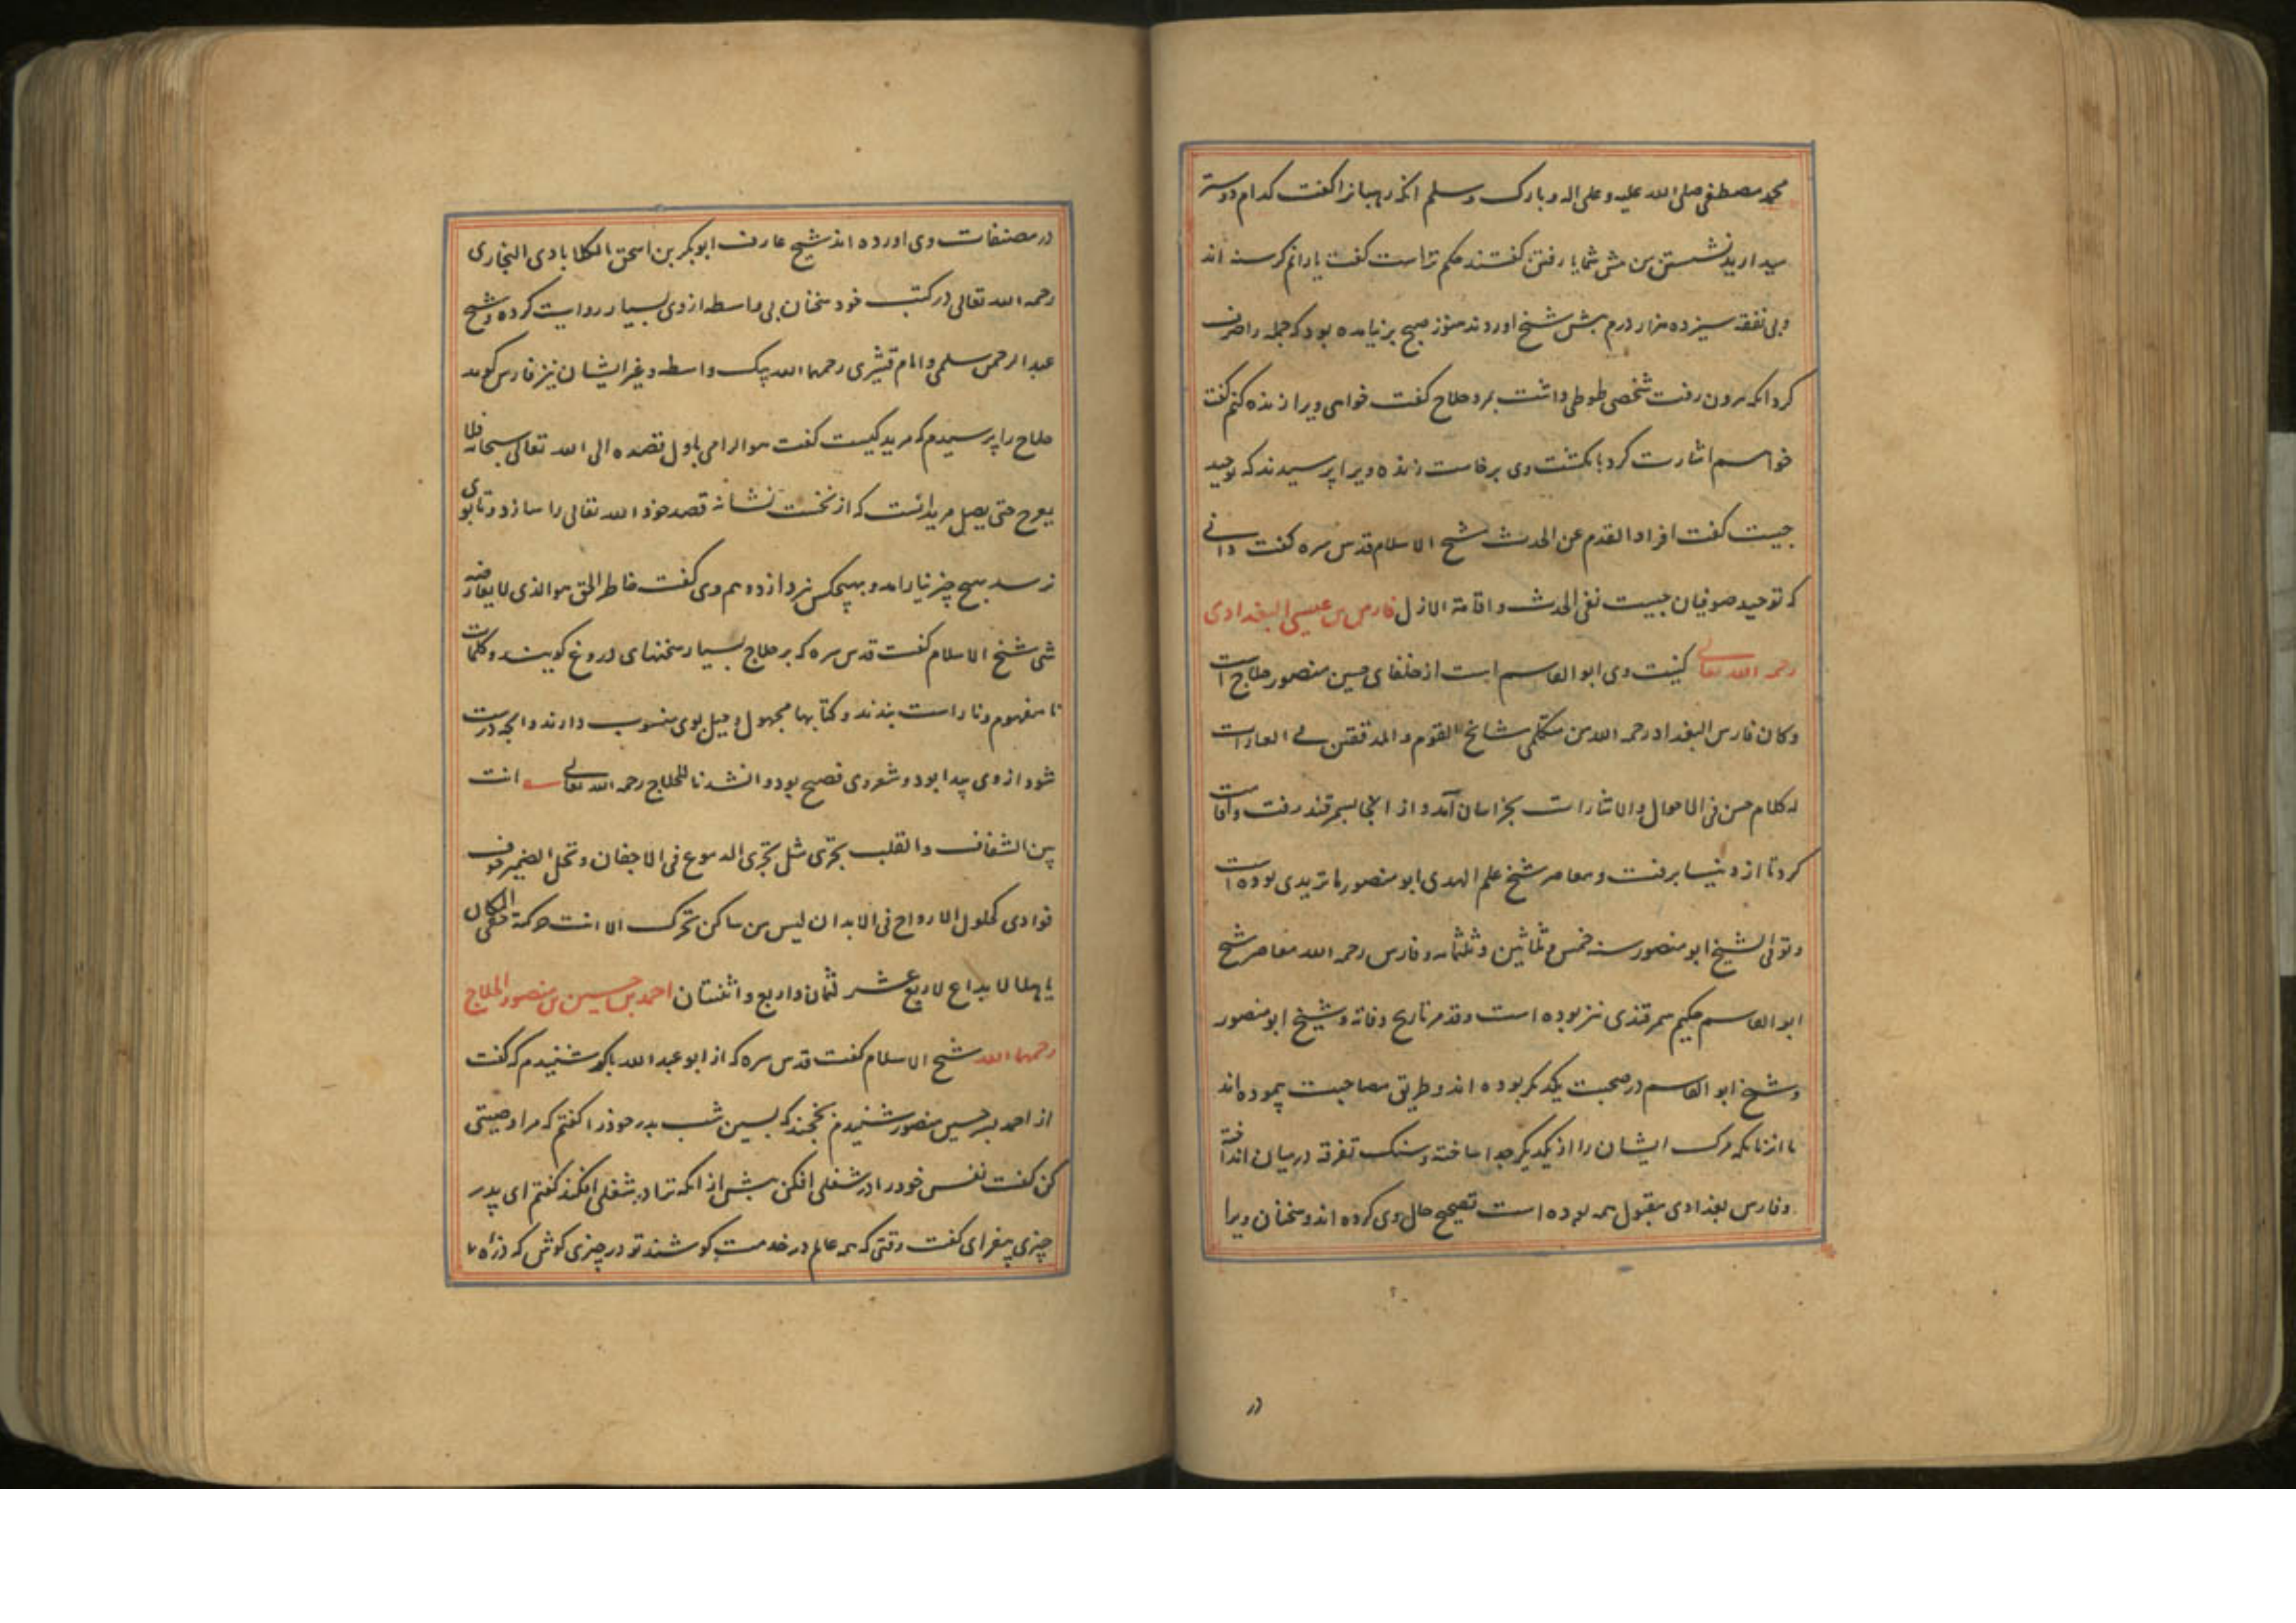 محمد مصطفی صلی الله علیه و علی اله و بارک وسلم انکه رهبانرا کفت کدام دوستر
میدارید نشستن من پیش شما یا رفتن کفتند حکم تراست کفت یارانم کرسنه اند
وبی نفقه سیزده هزار درم پیش شیخ اوردند هنوز صبح برنیامده بود که جمله را صرف
کرد انکه برون رفت شخصی طوطی داشت بمرد حلاج کفت خواهی ویرا زنده کنم کفت
خواهم اشارت کرد بانکشت وی برخاست زنده ویرا پرسیدند که توحید
چیست کفت افراد القدم عن الحدث شیخ الاسلام قدس سره کفت دانی
که توحید صوفیان چیست نفی الحدث واقامة الازل فارس بن عیسی البغدادی
رحمه الله تعالی کنیت وی ابو القاسم است از خلفای حسین منصور حلاج است
وکان فارس البغداد رحمه الله من متکلمی مشایخ القوم و المدققین فی العبارات
له کلام حسن فی الاحوال والاشارات بخراسان آمد و از انجا بسمرقند رفت و اقامت
کرد تا از دنیا برفت و معاصر شیخ علم الهدی ابو منصور ماتریدی بوده است
وتوفی الشیخ ابو منصور سنه خمس و ثلثین وثلثمائه و فارس رحمه الله معاصر شیخ
ابو القاسم حکیم سمرقندی نیز بوده است وقد مر تاریخ وفاته و شیخ ابو منصور
و شیخ ابو القاسم در صحبت یکدیکر بوده اند و طریق مصاحبت پیموده اند
تا انزمانکه مرک ایشان را از یکدیکر جدا ساخته و سنک تفرقه درمیان انداخته
وفارس بغدادی مقبول همه بوده است تصحیح حال وی کرده اند و سخنان ویرا
در
در مصنفات وی اورده اند شیخ عارف ابوبکر بن اسحق الکلابادی البخاری
رحمه الله تعالی در کتب خود سخنان بی واسطه از وی بسیار روایت کرده و شیخ
عبد الرحمن سلمی و امام قشیری رحمهما الله بیک واسطه و غیر ایشان نیز فارس کوید
حلاج را پرسیدم که مرید کیست کفت هو الرامی باول قصده الی الله تعالی سبحانه فلا
یعرج حتی یصل مرید انست که از نخست نشانه قصد خود الله تعالی را سازد و تا بوی
نرسد بهیچ چیز نیارامد و بهیچکس نپردازد و هم وی کفت خاطر الحق هو الذی لا یعارضه
شی شیخ الاسلام کفت قدس سره که بر حلاج بسیار سخنهای دروغ کویند و کلمات
نا مفهوم و نا راست بندند و کتابها مجهول و حیل بوی منسوب دارند و انچه درست
شود از وی پیدا بود و شعر وی فصیح بود و انشدنا للحلاج رحمه الله تعالی انت
بین الشغاف والقلب تجری مثل تجری الدموع فی الاجفان وتحل الضمیر جوف
فوادی کحلول الارواح فی الابدان لیس من ساکن تحرک الا انت حرکته خفی المکان
یا هلالا بدا ع لاربع عشر لثمان واربع واثنتان احمد بن حسین بن منصور الحلاج
رحمهما الله شیخ الاسلام کفت قدس سره که از ابو عبد الله باکو شنیدم که کفت
از احمد پسر حسین منصور شنیدم بخجند که پسین شب پدر خودرا کفتم که مرا وصیتی
کن کفت نفس خودرا در شغلی افکن پیش از انکه ترا در شغلی افکند کفتم ای پدر
چیزی بیفزای کفت وقتی که همه عالم در خدمت کوشند تو در چیزی کوش که ذره